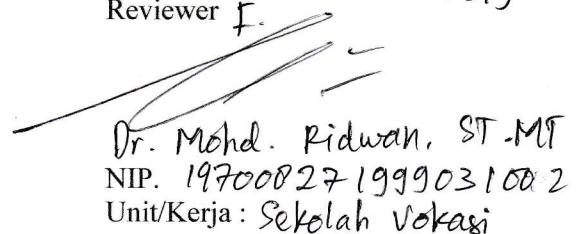 Reviewer I.
Dr. Mohd. Ridwan, ST.MT
NIP. 197008271999031002
Unit/Kerja : Sekolah Vokasi